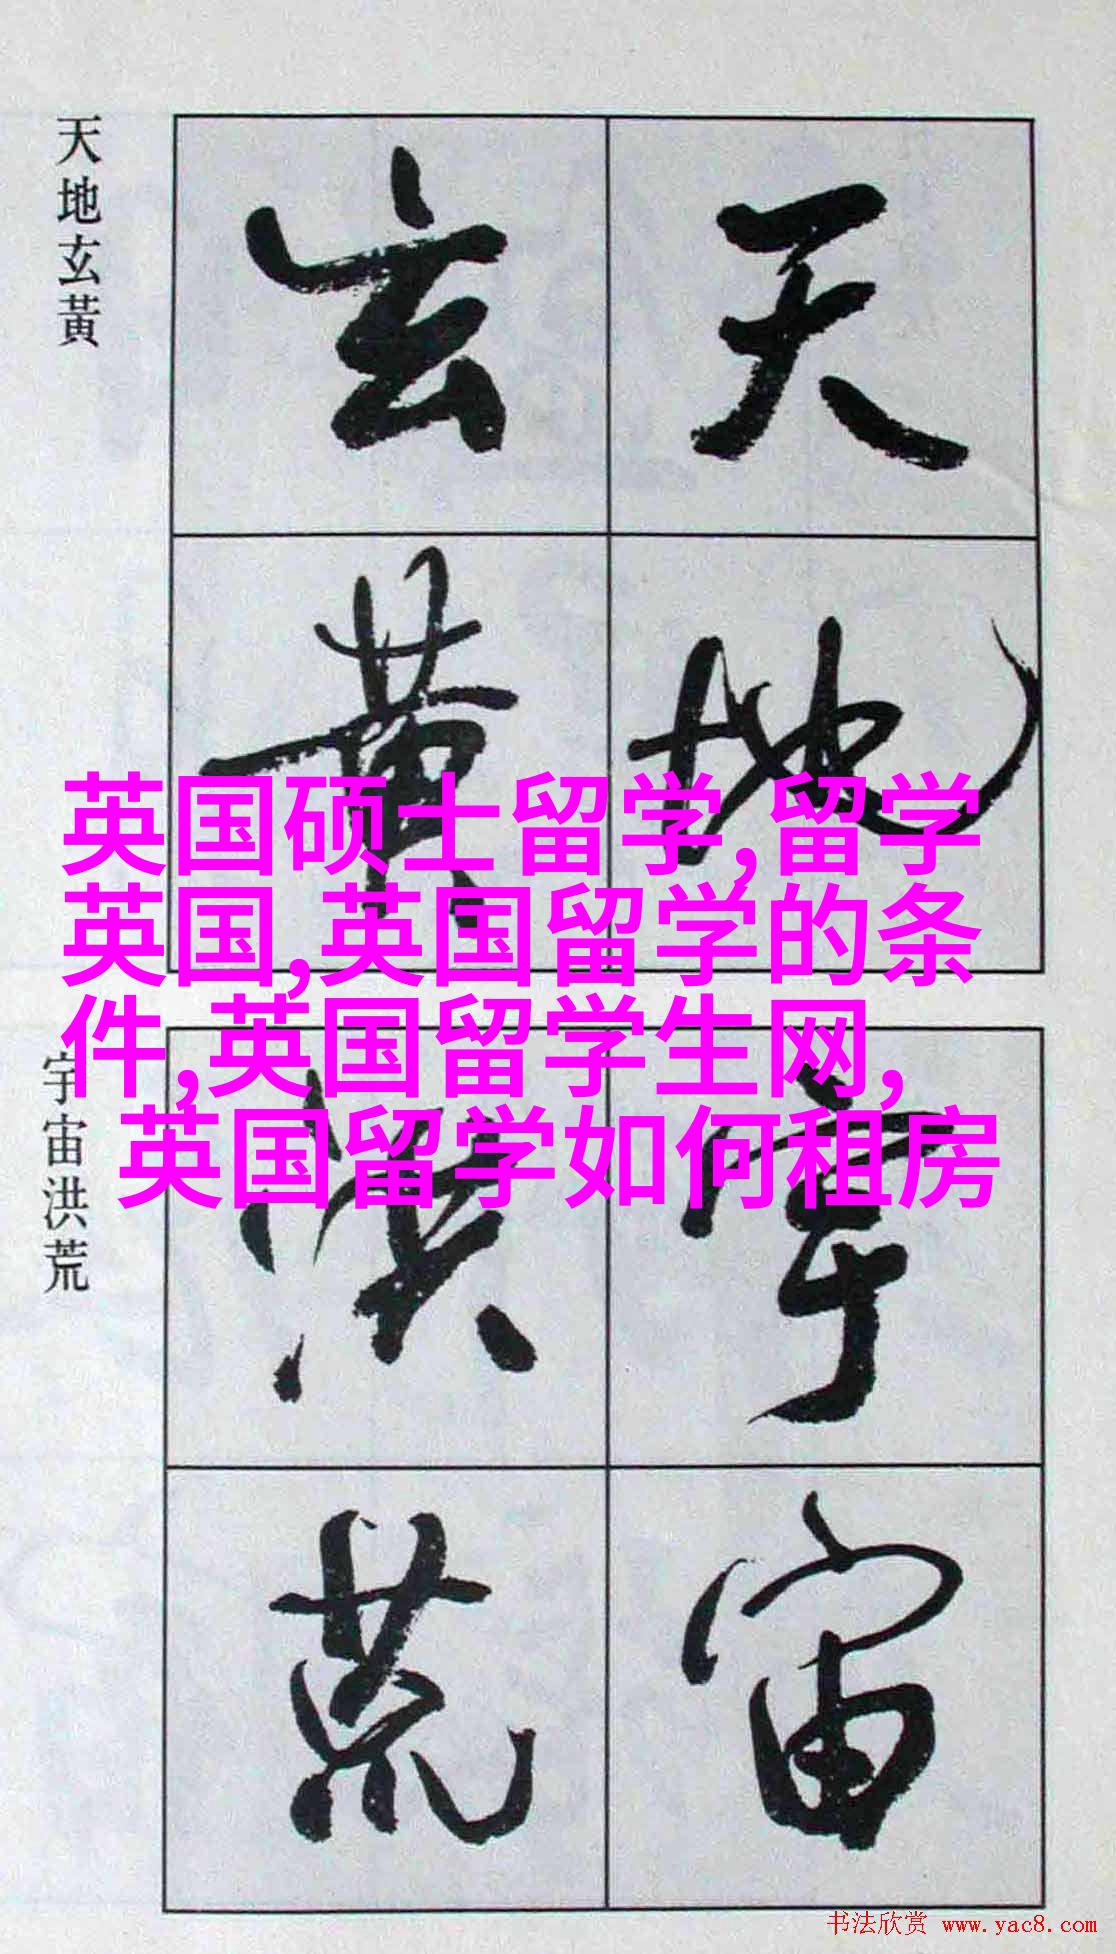 天地玄黃
天地
玄黄
英国硕士留学,留学
英国,英国留学的条
件,英国留学生网,
英国留学如何租房
宇宙洪荒
宇宙
洪荒
书法欣赏 www.yac8.com